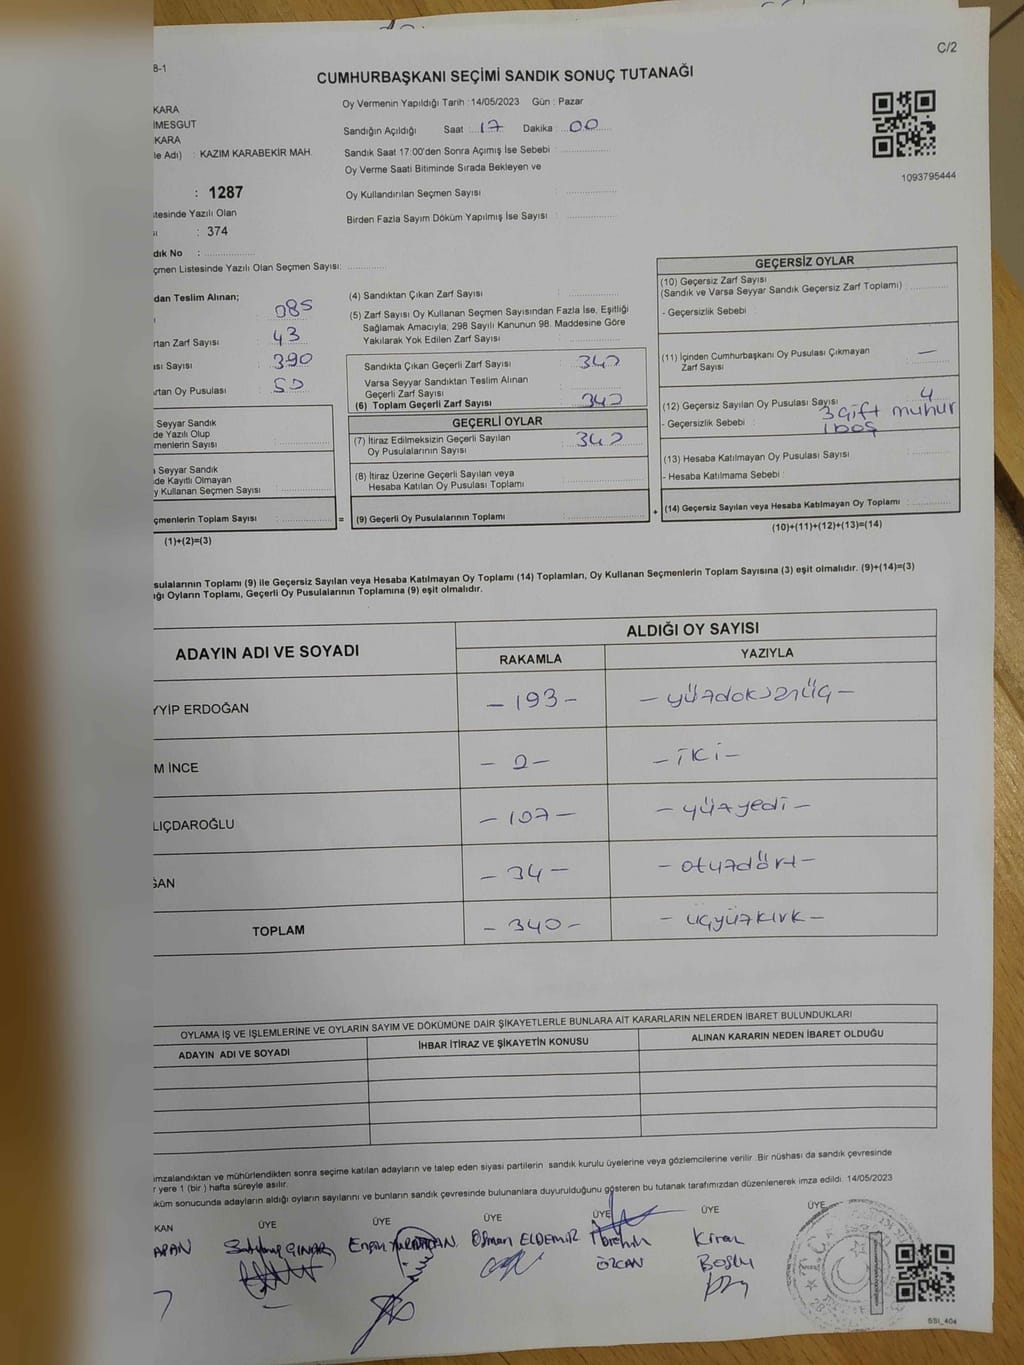 C/2
B-1
CUMHURBAŞKANI SEÇİMİ SANDIK SONUÇ TUTANAĞI
KARA
İMESGUT
KARA
le Adı) : KAZIM KARABEKİR MAH.
Oy Vermenin Yapıldığı Tarih :14/05/2023 Gün : Pazar
Sandığın Açıldığı Saat : 17 Dakika : 00
Sandık Saat 17:00'den Sonra Açımış İse Sebebi :
Oy Verme Saati Bitiminde Sırada Bekleyen ve
Oy Kullandırılan Seçmen Sayısı :
Birden Fazla Sayım Döküm Yapılmış İse Sayısı :
1093795444
: 1287
itesinde Yazılı Olan
: 374
dık No :
çmen Listesinde Yazılı Olan Seçmen Sayısı:
dan Teslim Alınan;
: 43
rtan Zarf Sayısı
ısı Sayısı : 390
Artan Oy Pusulası :
Seyyar Sandık
de Yazılı Olup
menlerin Sayısı :
Seyyar Sandık
de Kayıtlı Olmayan
y Kullanan Seçmen Sayısı :
çmenlerin Toplam Sayısı : =
(1)+(2)=(3)
(4) Sandıktan Çıkan Zarf Sayısı :
(5) Zarf Sayısı Oy Kullanan Seçmen Sayısından Fazla İse, Eşitliği
Sağlamak Amacıyla; 298 Sayılı Kanunun 98. Maddesine Göre
Yakılarak Yok Edilen Zarf Sayısı :
Sandıkta Çıkan Geçerli Zarf Sayısı : 340
Varsa Seyyar Sandıktan Teslim Alınan
Geçerli Zarf Sayısı :
(6) Toplam Geçerli Zarf Sayısı : 340
GEÇERLİ OYLAR
(7) İtiraz Edilmeksizin Geçerli Sayılan : 340
Oy Pusulalarının Sayısı
(8) İtiraz Üzerine Geçerli Sayılan veya
Hesaba Katılan Oy Pusulası Toplamı :
(9) Geçerli Oy Pusulalarının Toplamı : +
GEÇERSİZ OYLAR
(10) Geçersiz Zarf Sayısı
(Sandık ve Varsa Seyyar Sandık Geçersiz Zarf Toplamı) :
- Geçersizlik Sebebi :
(11) İçinden Cumhurbaşkanı Oy Pusulası Çıkmayan : —
Zarf Sayısı
(12) Geçersiz Sayılan Oy Pusulası Sayısı : 4
- Geçersizlik Sebebi : 3 çift mühür
1 boş
(13) Hesaba Katılmayan Oy Pusulası Sayısı :
- Hesaba Katılmama Sebebi :
(14) Geçersiz Sayılan veya Hesaba Katılmayan Oy Toplamı :
(10)+(11)+(12)+(13)=(14)
usulalarının Toplamı (9) ile Geçersiz Sayılan veya Hesaba Katılmayan Oy Toplamı (14) Toplamları, Oy Kullanan Seçmenlerin Toplam Sayısına (3) eşit olmalıdır. (9)+(14)=(3)
ığı Oyların Toplamı, Geçerli Oy Pusulalarının Toplamına (9) eşit olmalıdır.
ADAYIN ADI VE SOYADI ALDIĞI OY SAYISI
RAKAMLA YAZIYLA
YYİP ERDOĞAN - 193 - - yüzdoksanüç -
M İNCE - 2 - - iki -
LIÇDAROĞLU - 107 - - yüzyedi -
ĞAN - 34 - - otuzdört -
TOPLAM - 340 - - üçyüzkırk -
OYLAMA İŞ VE İŞLEMLERİNE VE OYLARIN SAYIM VE DÖKÜMÜNE DAİR ŞİKAYETLERLE BUNLARA AİT KARARLARIN NELERDEN İBARET BULUNDUKLARI
ADAYIN ADI VE SOYADI İHBAR İTİRAZ VE ŞİKAYETİN KONUSU ALINAN KARARIN NEDEN İBARET OLDUĞU
imzalandıktan ve mühürlendikten sonra seçime katılan adayların ve talep eden siyasi partilerin sandık kurulu üyelerine veya gözlemcilerine verilir .Bir nüshası da sandık çevresinde
r yere 1 (bir ) hafta süreyle asılır.
küm sonucunda adayların aldığı oyların sayılarını ve bunların sandık çevresinde bulunanlara duyurulduğunu gösteren bu tutanak tarafımızdan düzenlenerek imza edildi. 14/05/2023
KAN ÜYE ÜYE ÜYE ÜYE ÜYE ÜYE
APAN ÇINAR Osman ELDEMİR İbrahim
ÖZCAN
T.C.
SSI_404